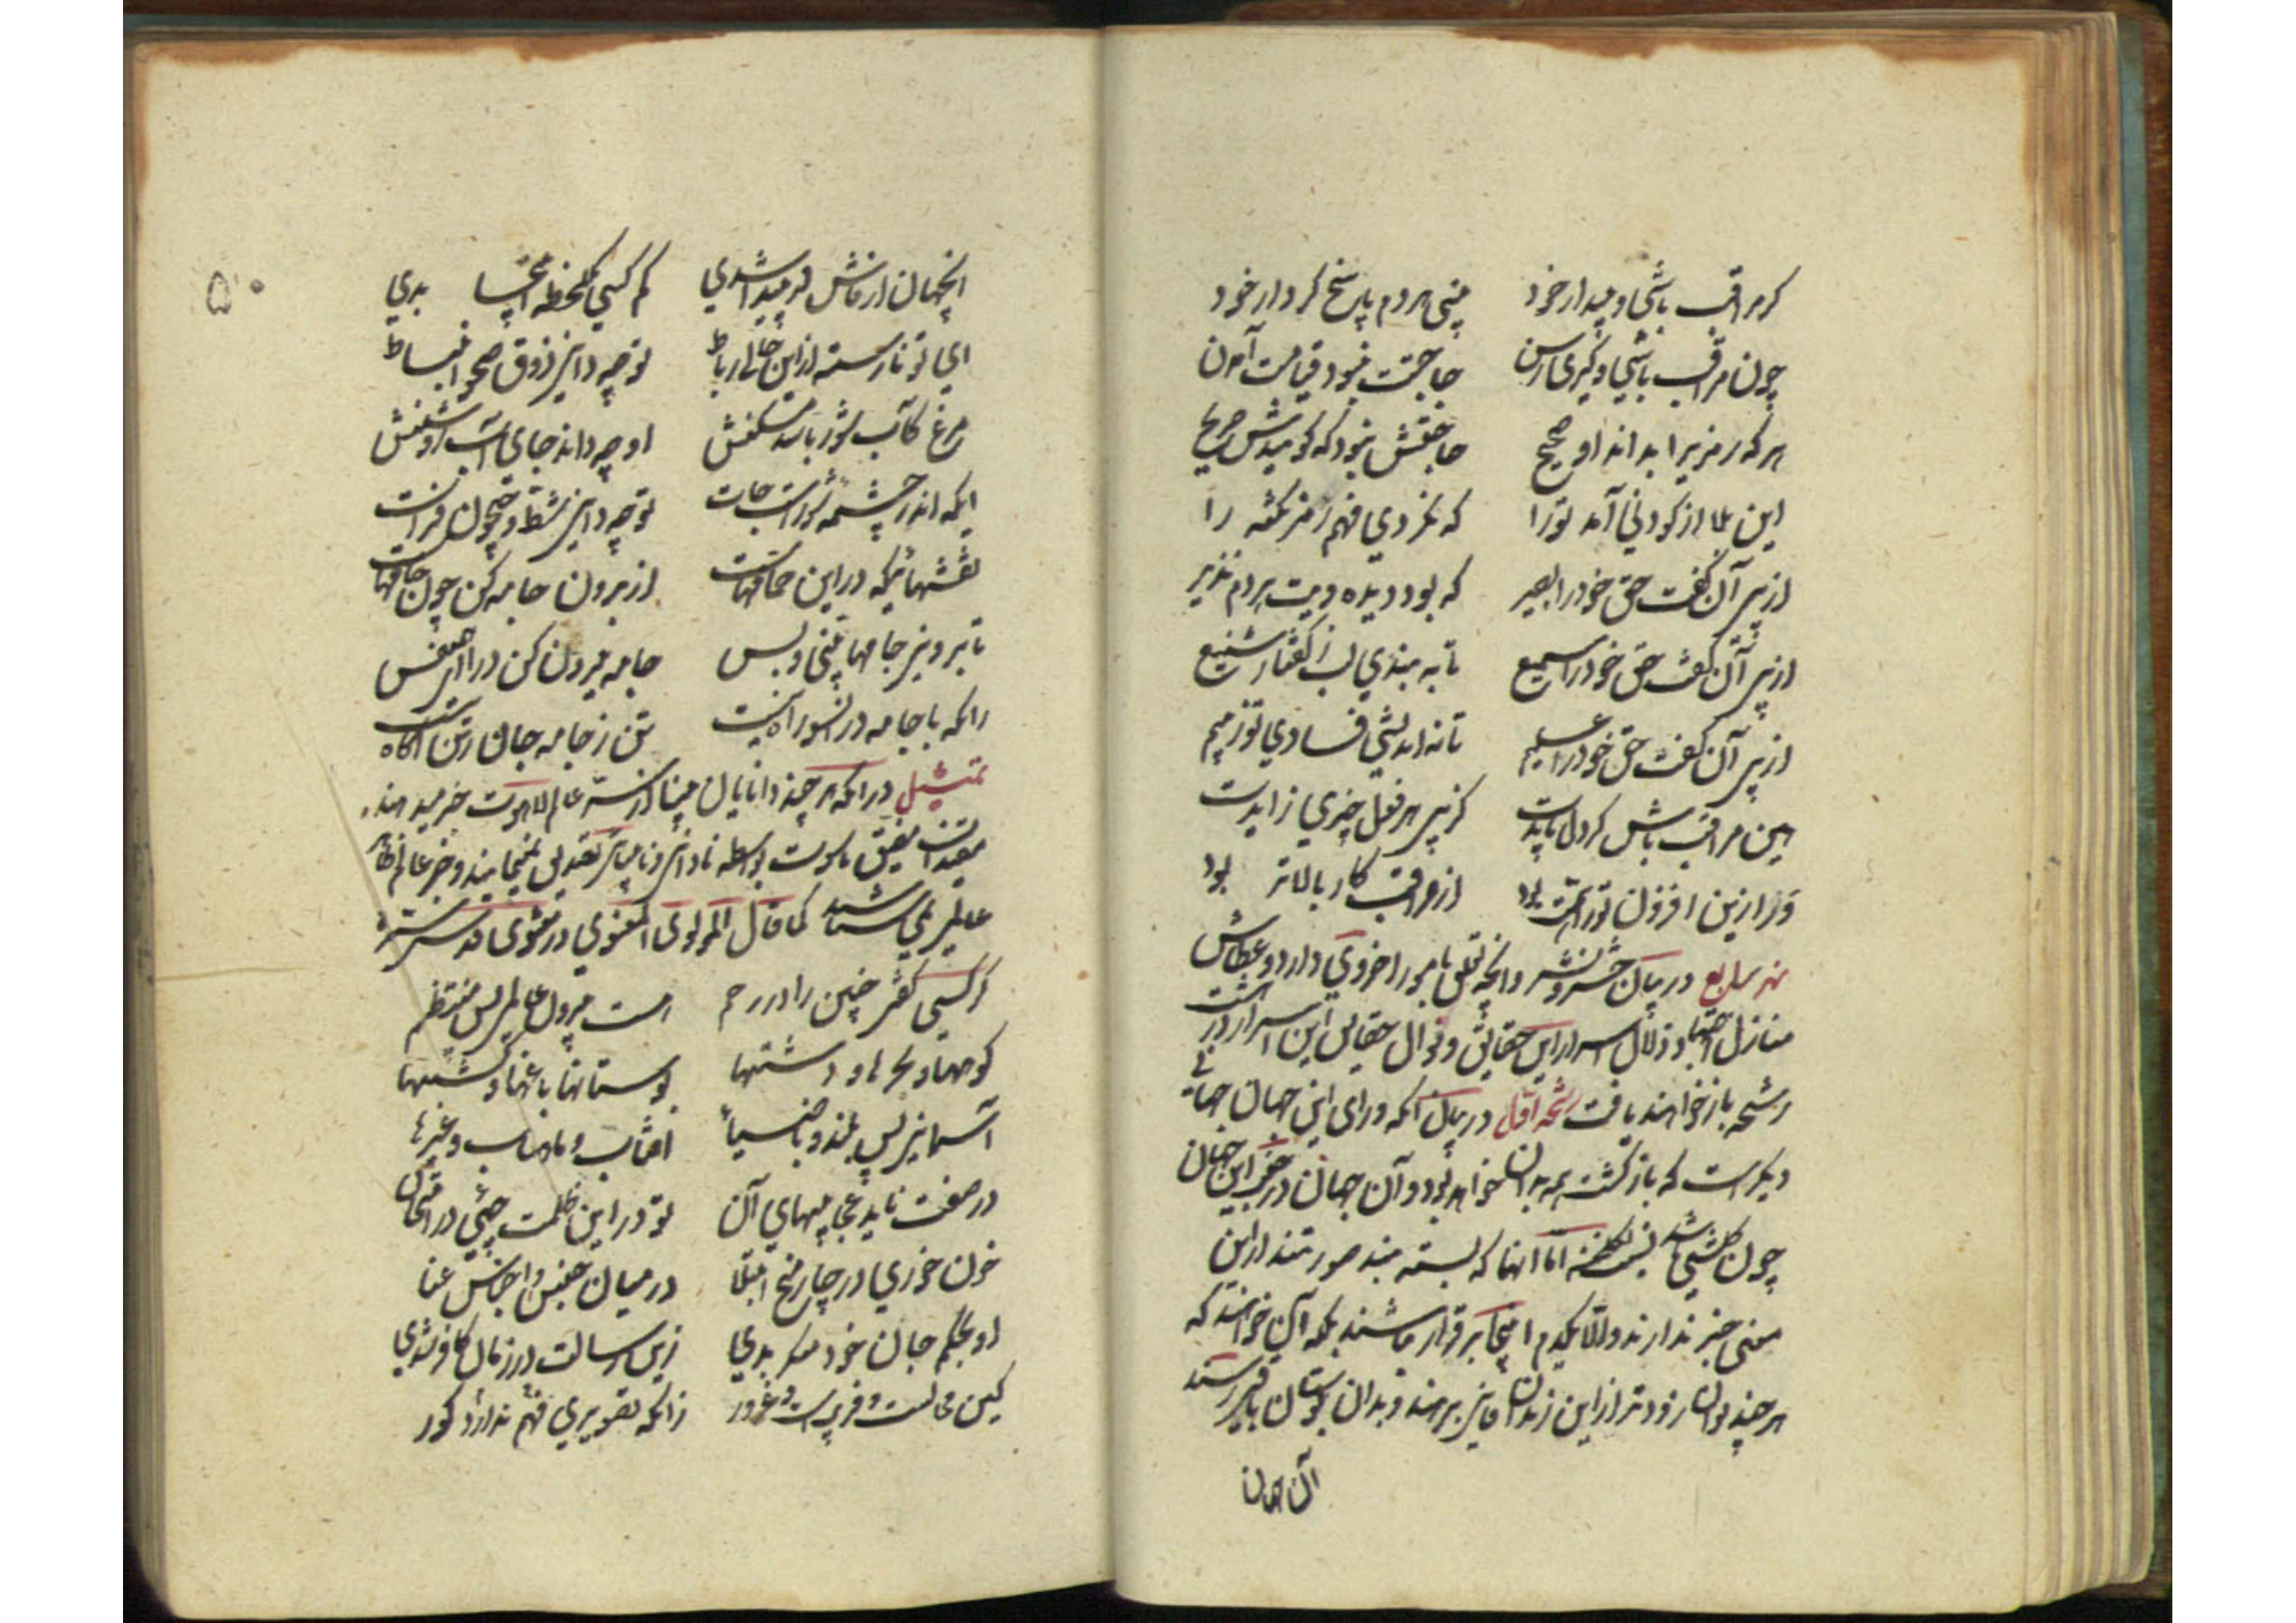 گر مراقب باشی و بیدار خود بینی هر دم پاسخ کردار خود
چون مراقب باشی و گیری رسن حاجتت نبود قیامت آمدن
هر که رمزی را بداند او صحیح حاجتش نبود که گویندش صریح
این بلا از کودنی آمد تو را که نکردی فهم رمز نکته را
از پی آن گفت حق خود را بصیر که بود دید ویت هر دم نذیر
از پی آن گفت حق خود را سمیع تا به بندی لب ز گفتار شنیع
از پی آن گفت حق خود را علیم تا نه اندیشی فسادی تو ز بیم
هین مراقب باش گر دل بایدت کز پی هر فعل چیزی زایدت
ور ازین افزون تو را همت بود از مراقب کار بالاتر بود
نهر سابع در بیان حشر و نشر و آنچه تعلق بامور اخروی دارد و عطاش
منازل زلال اسرار این حقایق و نوال حقایق این اسرار در
رشحه باز خواهند یافت رشحه اول در بیان آنکه ورای این جهان جهانی
دیگرست که بازگشت همه بدان خواهد بود و آن جهان در جنب این جهان
چون گلشنی باشد اما آنها که بسته بند صورتند از این
معنی خبر ندارند و الا یکدم اینجا برقرار نباشند بلکه آن خواهند که
هر چند توان زودتر از این زندان فانی برهند و بدان بوستان باقی رسند
آن جهان
۵۰
آنجهان از فانش ار پیدا شدی کم کسی یکلحظه اینجا بدی
ای تو نارسته از این فانی رباط تو چه دانی ذوق صحو و انبساط
مرغ کآب شور باشد مسکنش او چه داند جای آب روشنش
ایکه اندر چشمه شورست جات تو چه دانی شط و جیحون و فرات
نقشهائیکه در این حمامهاست از برون جامه کن چون جامهاست
تا برونی جامها بینی و بس جامه بیرون کن درا ای هم نفس
زانکه با جامه در آنسو راه نیست تن ز جامه جان ز تن آگاه نیست
تمثیل در آنکه هر چند دانایان بینا از عالم لاهوت خبر میدهند
مقیدان مضیق ناسوت بواسطه نادانی و نابینائی تصدیق نمینمایند و جز عالم ظاهر
عالمی نمی شناسند کما قال المولوی المعنوی فی مثنوی قدس سره
گر کسی گفتی جنین را در رحم هست بیرون عالمی بس منتظم
کوهها و بحرها و دشتها بوستانها باغها و کشتها
آسمانی بس بلند و با ضیا آفتاب و ماهتاب و غیرها
در صفت ناید عجایبهای آن تو در این ظلمت چئی در امتحان
خون خوری در چار میخ ابتلا در میان حبس و انجاس و عنا
او بحکم حال خود منکر بدی زین رسالت در زمان کافر شدی
کین محالست و فریبست و غرور زانکه تصویری فهم ندارد کور